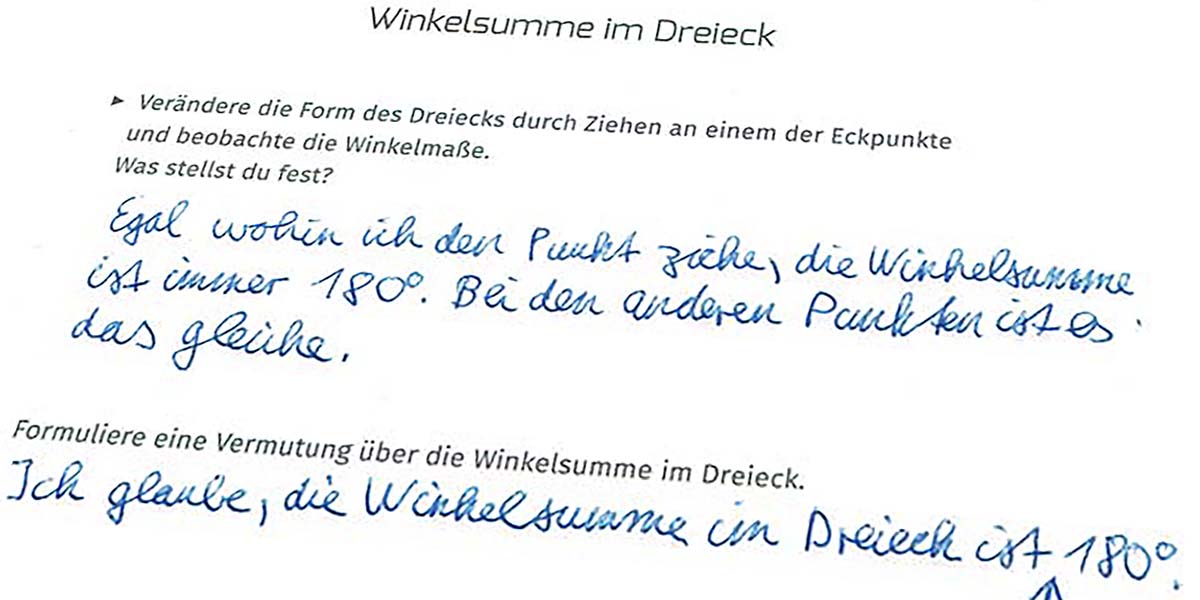 Winkelsumme im Dreieck
► Verändere die Form des Dreiecks durch Ziehen an einem der Eckpunkte
und beobachte die Winkelmaße.
Was stellst du fest?
Egal wohin ich den Punkt ziehe, die Winkelsumme
ist immer 180°. Bei den anderen Punkten ist es
das gleiche.
Formuliere eine Vermutung über die Winkelsumme im Dreieck.
Ich glaube, die Winkelsumme im Dreieck ist 180°.